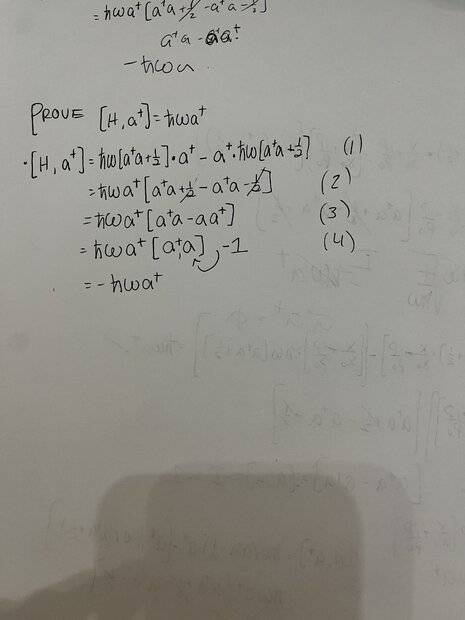 = ħωa†[a†a + 1/2 - a†a - 1/2]
a†a - aa†
- ħωa
PROVE [H, a†] = ħωa†
· [H, a†] = ħω[a†a + 1/2] · a† - a† · ħω[a†a + 1/2] (1)
= ħωa†[a†a + 1/2 - a†a - 1/2] (2)
= ħωa†[a†a - aa†] (3)
= ħωa†[a†, a] -1 (4)
= - ħωa†